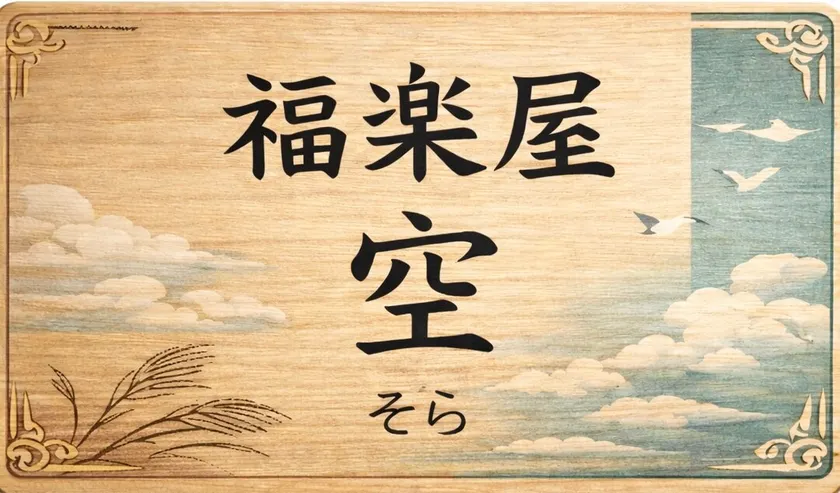 福楽屋
空
そら